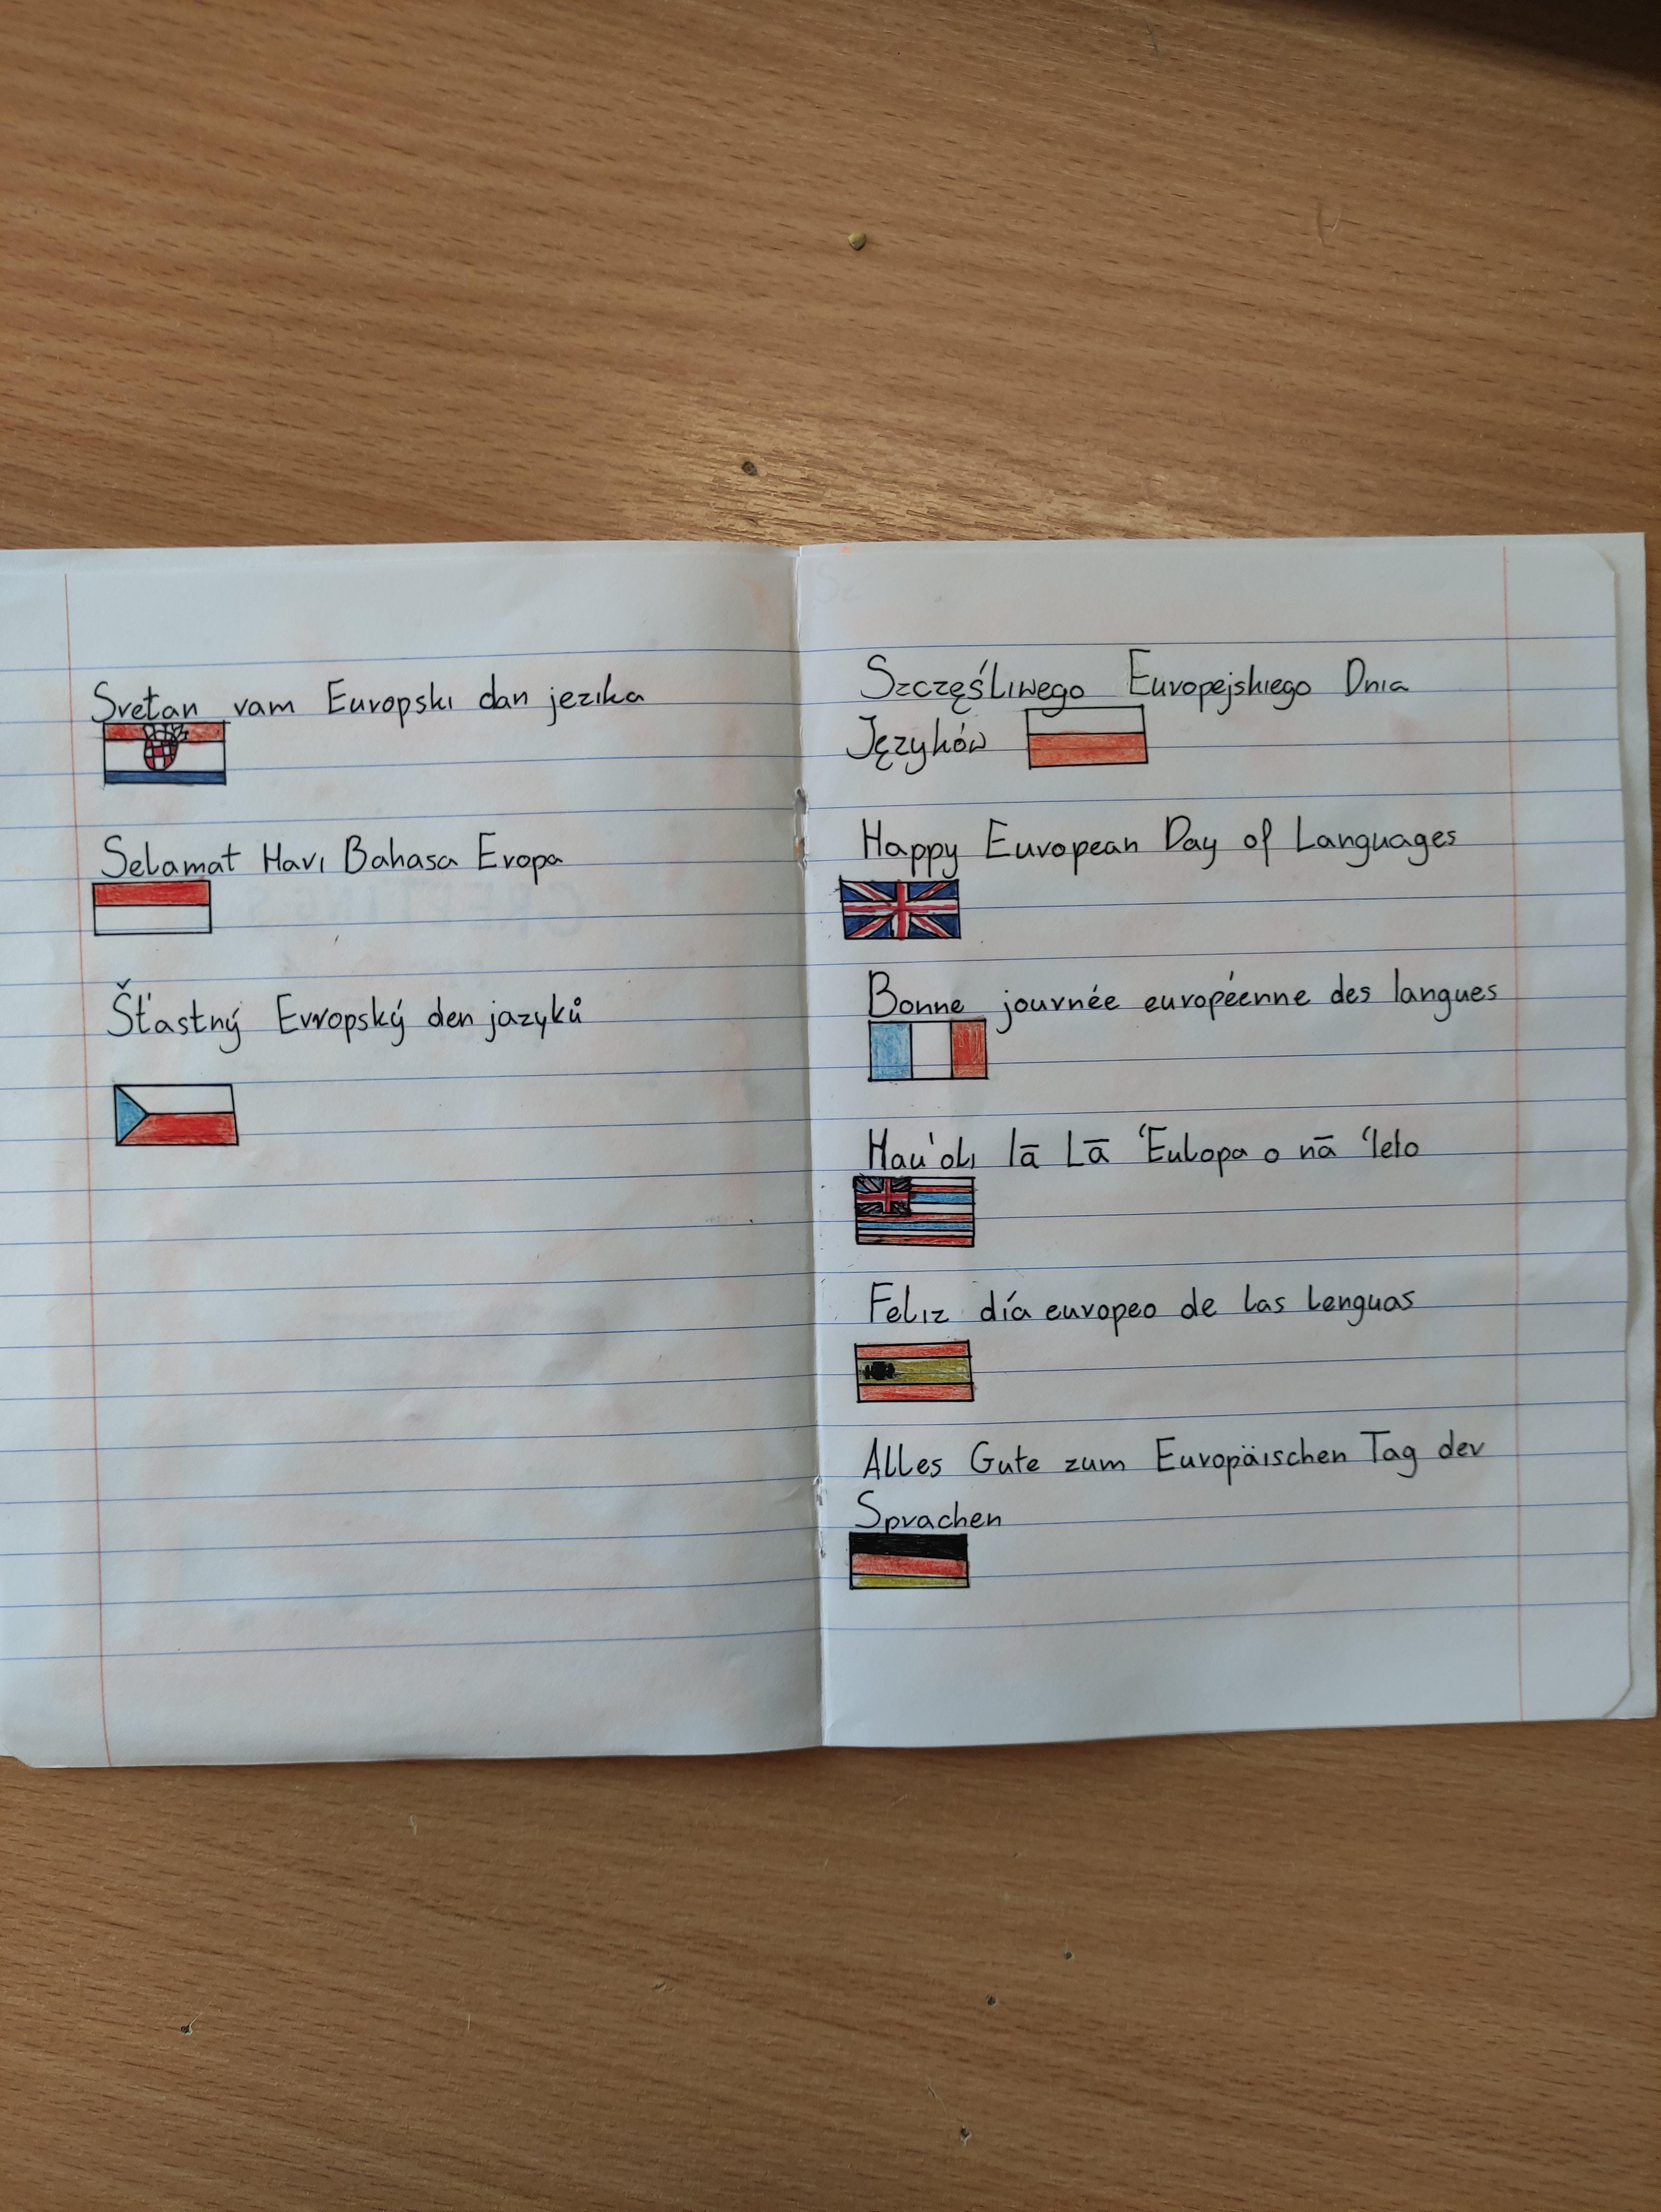 Sretan vam Europski dan jezika
Selamat Hari Bahasa Eropa
Šťastný Evropský den jazyků
Szczęśliwego Europejskiego Dnia
Języków
Happy European Day of Languages
Bonne journée européenne des langues
Hau'oli lā Lā ʻEulopa o nā ʻlelo
Feliz día europeo de las lenguas
Alles Gute zum Europäischen Tag der
Sprachen